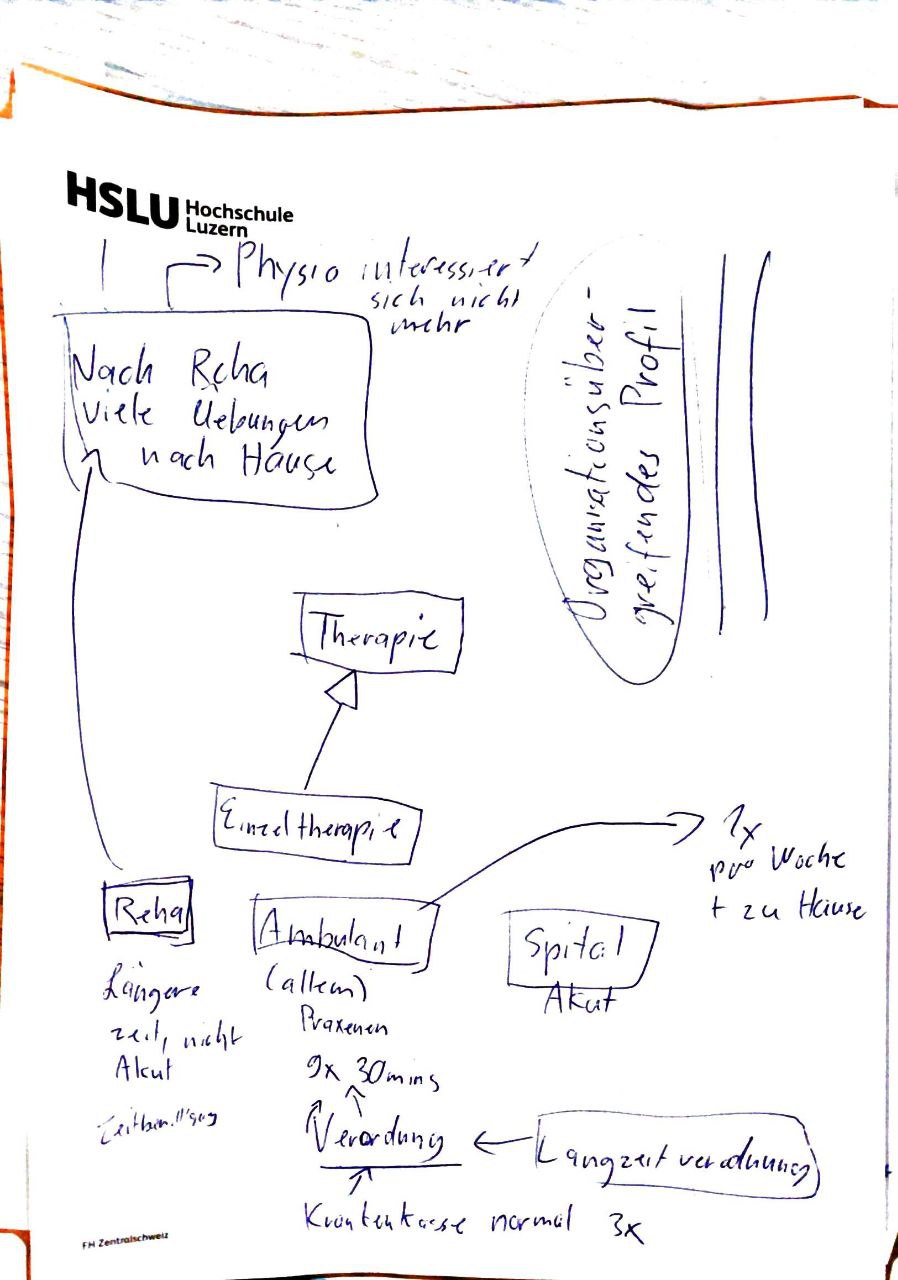 HSLU Hochschule
Luzern
Physio interessiert
sich nicht
mehr
Nach Reha
viele Uebungen
nach Hause
Organisationsüber-
greifendes Profil
Therapie
Einzeltherapie
1x
pro Woche
+ zu Hause
Reha
Ambulant
Spital
Akut
Längere
zeit, nicht
Akut
(allein)
Praxenen
9x 30mins
Verordung
Langzeit verordnung
Krankenkasse normal 3x
FH Zentralschweiz